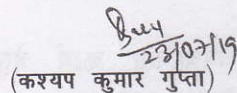 23/07/19
(कश्यप कुमार गुप्ता)